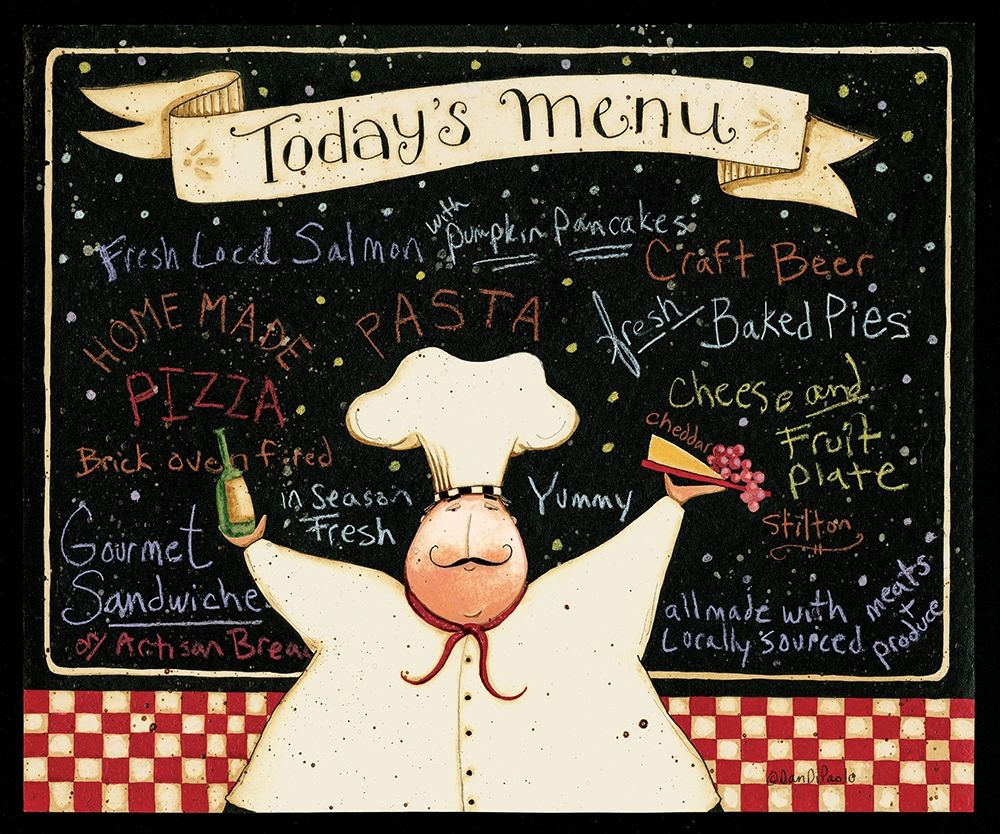 Today's menu
Fresh Local Salmon with Pumpkin Pancakes
Craft Beer
HOME MADE
PIZZA
Brick oven fired
PASTA
fresh Baked Pies
cheese and
Fruit
plate
cheddar
Stilton
in Season
Fresh
Yummy
Gourmet
Sandwiche
on Artisan Brea
all made with
Locally sourced
meats
+ produce
©Dan DiPaolo